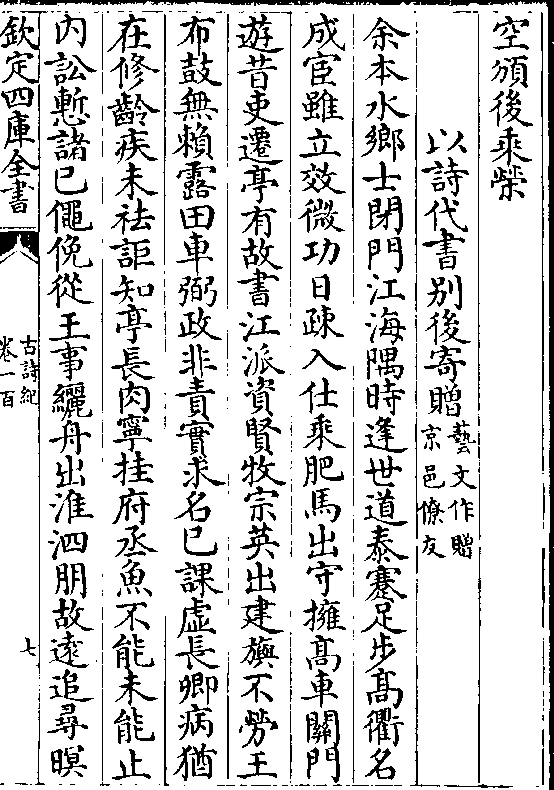 空頒後乘榮
以詩代書别後寄贈藝文作贈
京邑僚友
余本水鄉士閉門江海隅時逢世道泰蹇足步髙衢名
成宦雖立效微功日疎入仕乘肥馬出守擁髙車關門
遊昔吏遷亭有故書江派資賢牧宗英出建旟不勞王
布鼓無賴露田車弼政非責實求名已課虚長卿病猶
在修齡疾未袪詎知亭長肉寧挂府丞魚不能未能止
内訟慙諸已僶俛從王事纚舟出淮泗朋故逺追尋暝
欽定四庫全書
古詩紀
卷一百
七